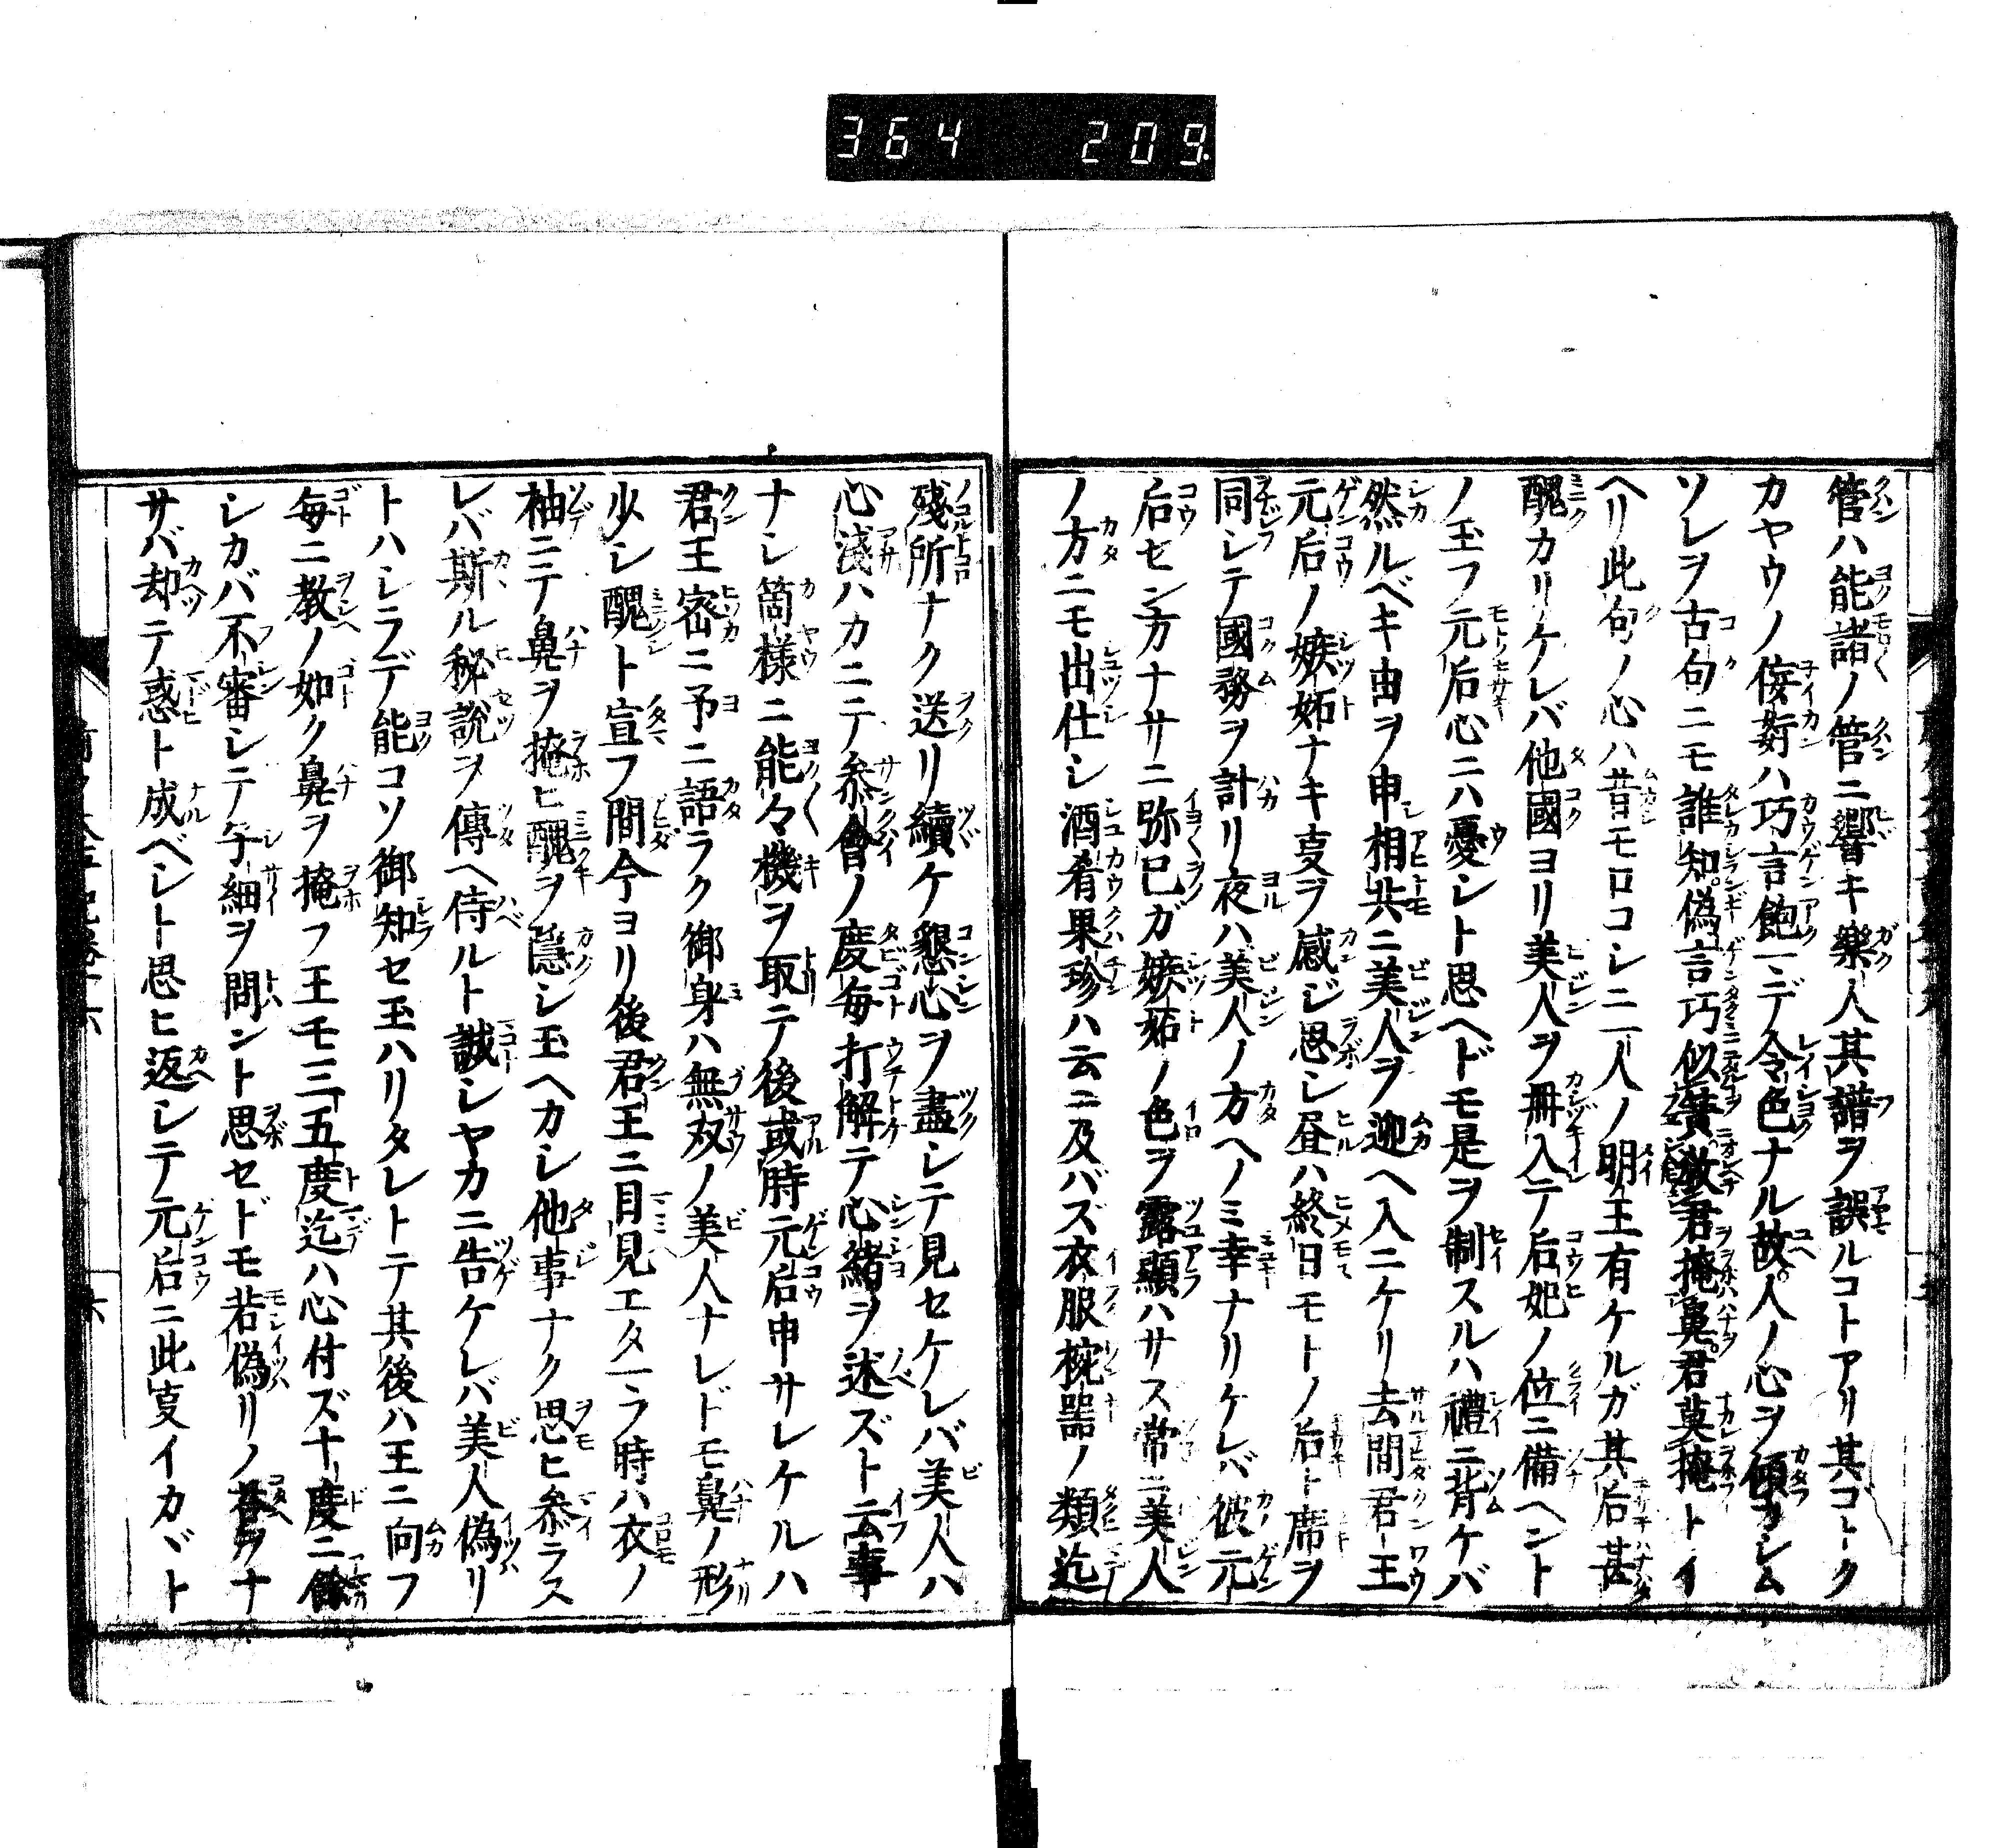 364 209.
管ハ能諸ノ管ニ響キ樂人其譜ヲ誤ルコトアリ其ゴトク
カヤウノ侫姧ハ巧言飽マデ令色ナル故人ノ心ヲ傾カシム
ソレヲ古句ニモ誰知偽言巧似簧教君掩鼻君莫掩トイ
ヘリ此句ノ心ハ昔モロコシニ一人ノ明王有ケルガ其后甚
醜カリケレバ他國ヨリ美人ヲ冊入テ后妃ノ位ニ備ヘント
ノ玉フ元后心ニハ憂シト思ヘドモ是ヲ制スルハ禮ニ背ケバ
然ルベキ由ヲ申相共ニ美人ヲ迎ヘ入ニケリ去間君王
元后ノ嫉妬ナキ㕝ヲ感ジ思シ昼ハ終日モトノ后ト席ヲ
同シテ國務ヲ計リ夜ハ美人ノ方ヘノミ幸ナリケレバ彼元
后センカナサニ弥已ガ嫉妬ノ色ヲ露顯ハサス常ニ美人
ノ方ニモ出仕シ酒肴果珍ハ云ニ及バズ衣服椀噐ノ類迄
殘所ナク送リ續ケ懇心ヲ盡シテ見セケレバ美人ハ
心淺ハカニテ參會ノ度毎打解テ心緒ヲ述ズト云事
ナシ箇様ニ能々機ヲ取テ後或時元后申サレケルハ
君王密ニ予ニ語ラク御身ハ無双ノ美人ナレドモ鼻ノ形
少シ醜ト宣フ間今ヨリ後君王ニ目見エタマラ時ハ衣ノ
袖ニテ鼻ヲ掩ヒ醜ヲ隱シ玉ヘカシ他事ナク思ヒ參ラス
レバ斯ル秘説ヲ傳ヘ侍ルト誠シヤカニ告ケレバ美人偽リ
トハシラデ能コソ御知セ玉ハリタレトテ其後ハ王ニ向フ
毎ニ教ノ如ク鼻ヲ掩フ王モ三五度迄ハ心付ズ十度ニ餘
シカバ不審シテ子細ヲ問ント思セドモ若偽リノ荅ヲナ
サバ却テ惑ト成ベシト思ヒ返シテ元后ニ此㕝イカヾト